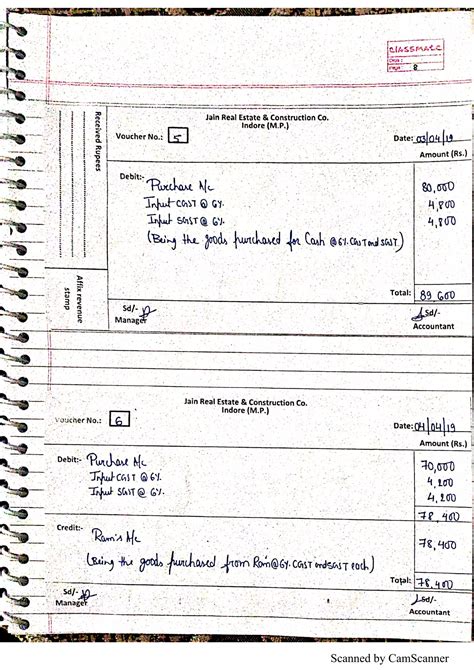 CLASSMATE
Date :
Page : 8
Received Rupees
Affix revenue
stamp
Jain Real Estate & Construction Co.
Indore (M.P.)
Voucher No.: 5
Date: 03/04/19
Amount (Rs.)
Debit:- Purchase A/c 80,000
Input CGST @ 6%. 4,800
Input SGST @ 6%. 4,800
(Being the goods purchased for Cash @6%. CGST and SGST.)
Total: 89,600
Sd/-
Manager
Sd/-
Accountant
Jain Real Estate & Construction Co.
Indore (M.P.)
Voucher No.: 6
Date: 04/04/19
Amount (Rs.)
Debit:- Purchase A/c 70,000
Input CGST @ 6%. 4,200
Input SGST @ 6%. 4,200
78,400
Credit:-
Ram's A/c 78,400
(Being the goods purchased from Ram @6%. CGST and SGST each)
Total: 78,400
Sd/-
Manager
Sd/-
Accountant
Scanned by CamScanner